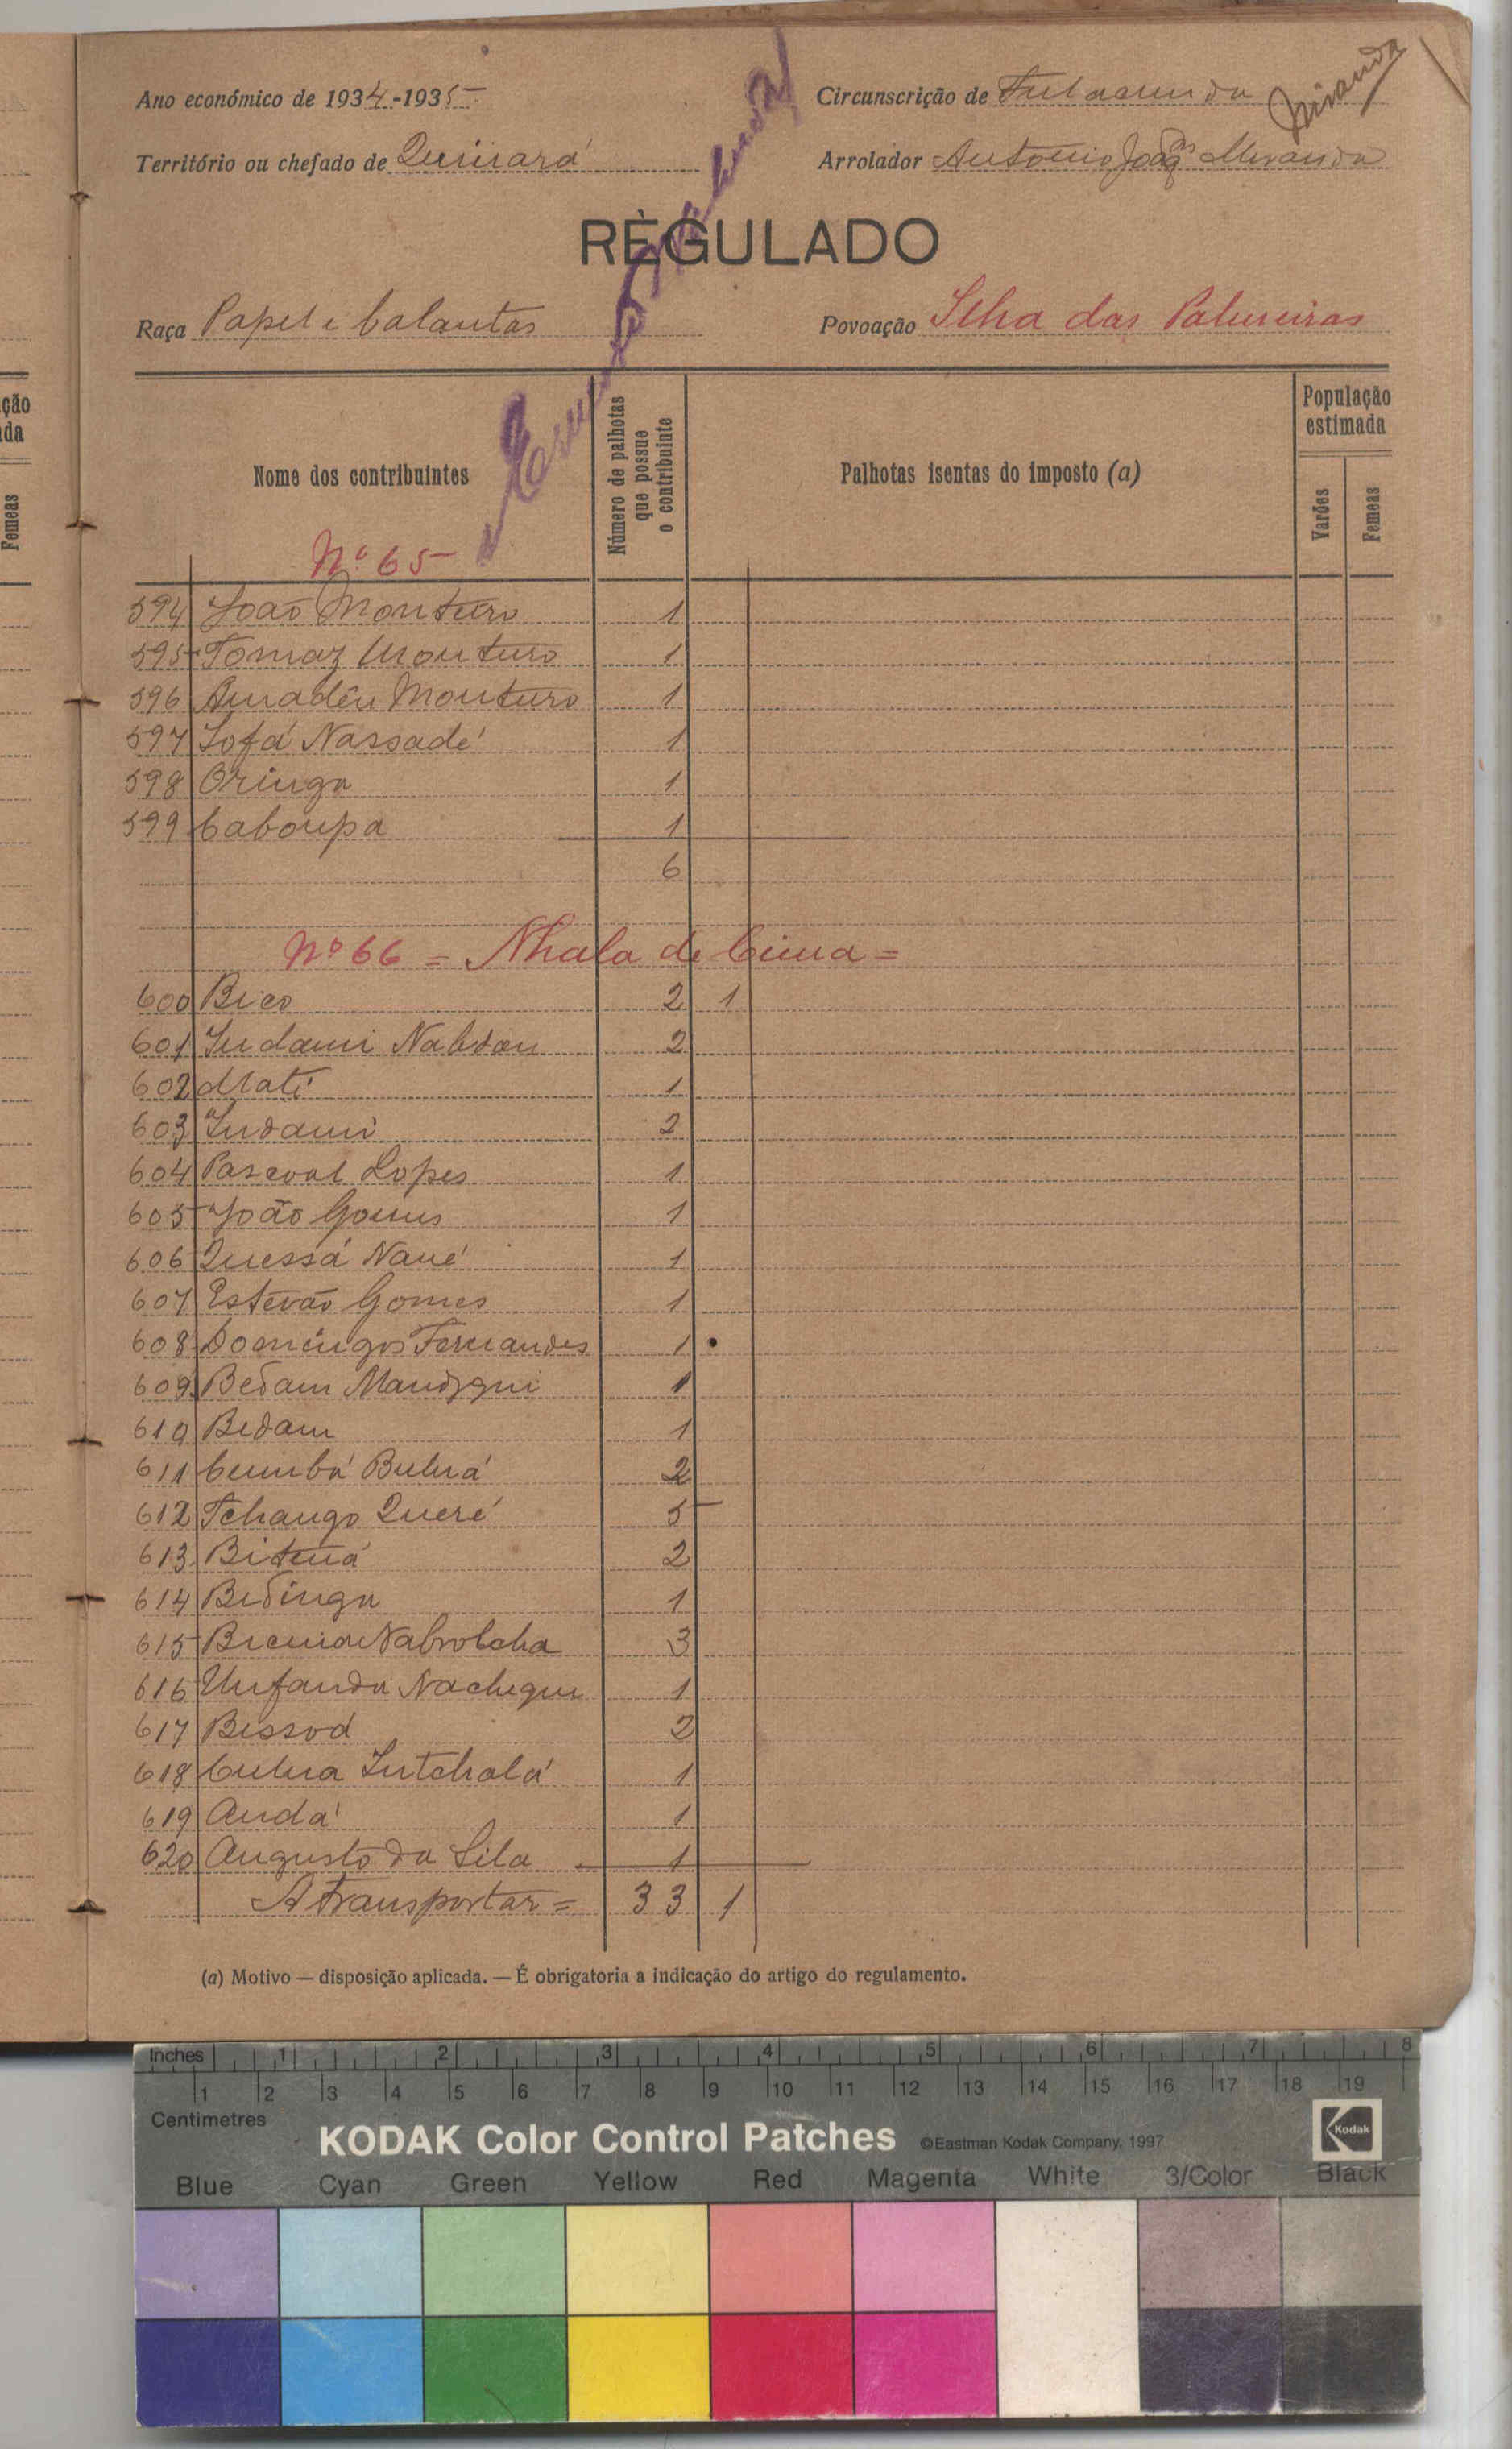 Ano económico de 1934-1935
Circunscrição de Fulacunda
Miranda
Território ou chefado de Quinará
Arrolador António Joaqᵐ Miranda
RÈGULADO
Raça Papel e balantas
Povoação Ilha das Palmeiras
Nome dos contribuintes
Número de palhotas que possue o contribuinte
Palhotas isentas do imposto (a)
População estimada
Varões
Femeas
Nº 65
594 João Monteiro 1
595 Tomaz Monteiro 1
596 Amadêu Monteiro 1
597 Iofá Nassadé 1
598 Oringa 1
599 Caboupa 1
6
Nº 66 = Nhala de Cima =
600 Bico 2 1
601 Indami 2
602 Mati 1
603 Indami 2
604 Pascoal Lopes 1
605 João Gomes 1
606 Quessá Nané 1
607 Estevão Gomes 1
608 Domingos Fernandes 1
609 Bedam 1
610 Bedam 1
611 Cumbá 2
612 Tchango Queré 5
613 2
614 Bedinga 1
615 3
616 Unfanda 1
617 Bissod 2
618 Intchalá 1
619 Andá 1
620 Augusto da Sila 1
A transportar = 33 1
(a) Motivo — disposição aplicada. — É obrigatoria a indicação do artigo do regulamento.
ção
da
Femeas
Inches 1 2 3 4 5 6 7 8
1 2 3 4 5 6 7 8 9 10 11 12 13 14 15 16 17 18 19
Centimetres
KODAK Color Control Patches ©Eastman Kodak Company, 1997 Kodak
Blue Cyan Green Yellow Red Magenta White 3/Color Black